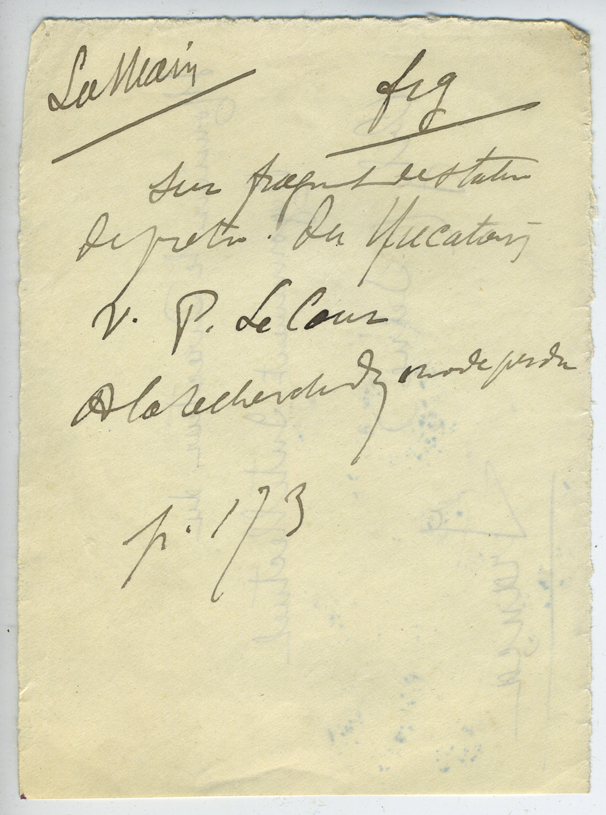 La Main
fig
sur fragment de statue
de pretre. du Yucatan
V. P. Le Cour
A la recherche d'un monde perdu
p. 173